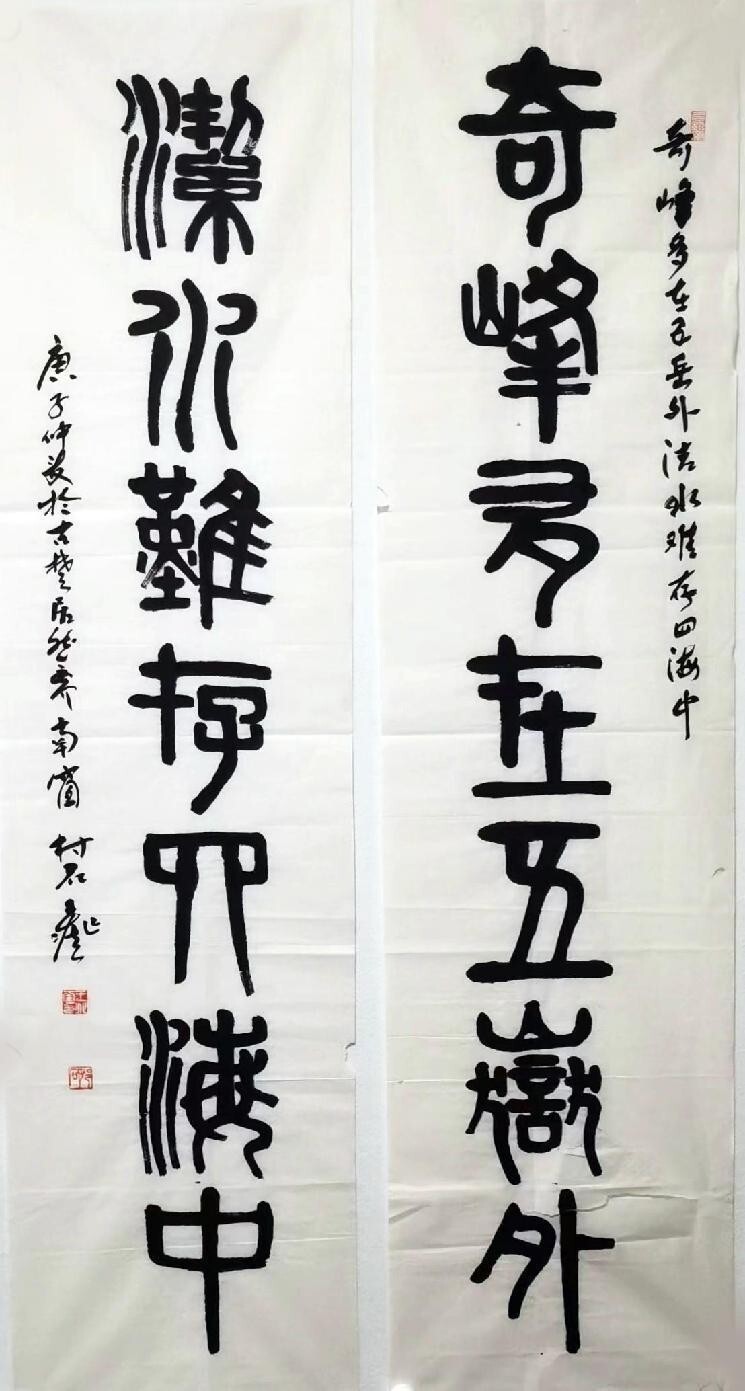 奇峰多在五岳外洁水难存四海中
奇峰多在五嶽外
潔水難存四海中
庚子仲夏於古楚居然斋南窗 村石